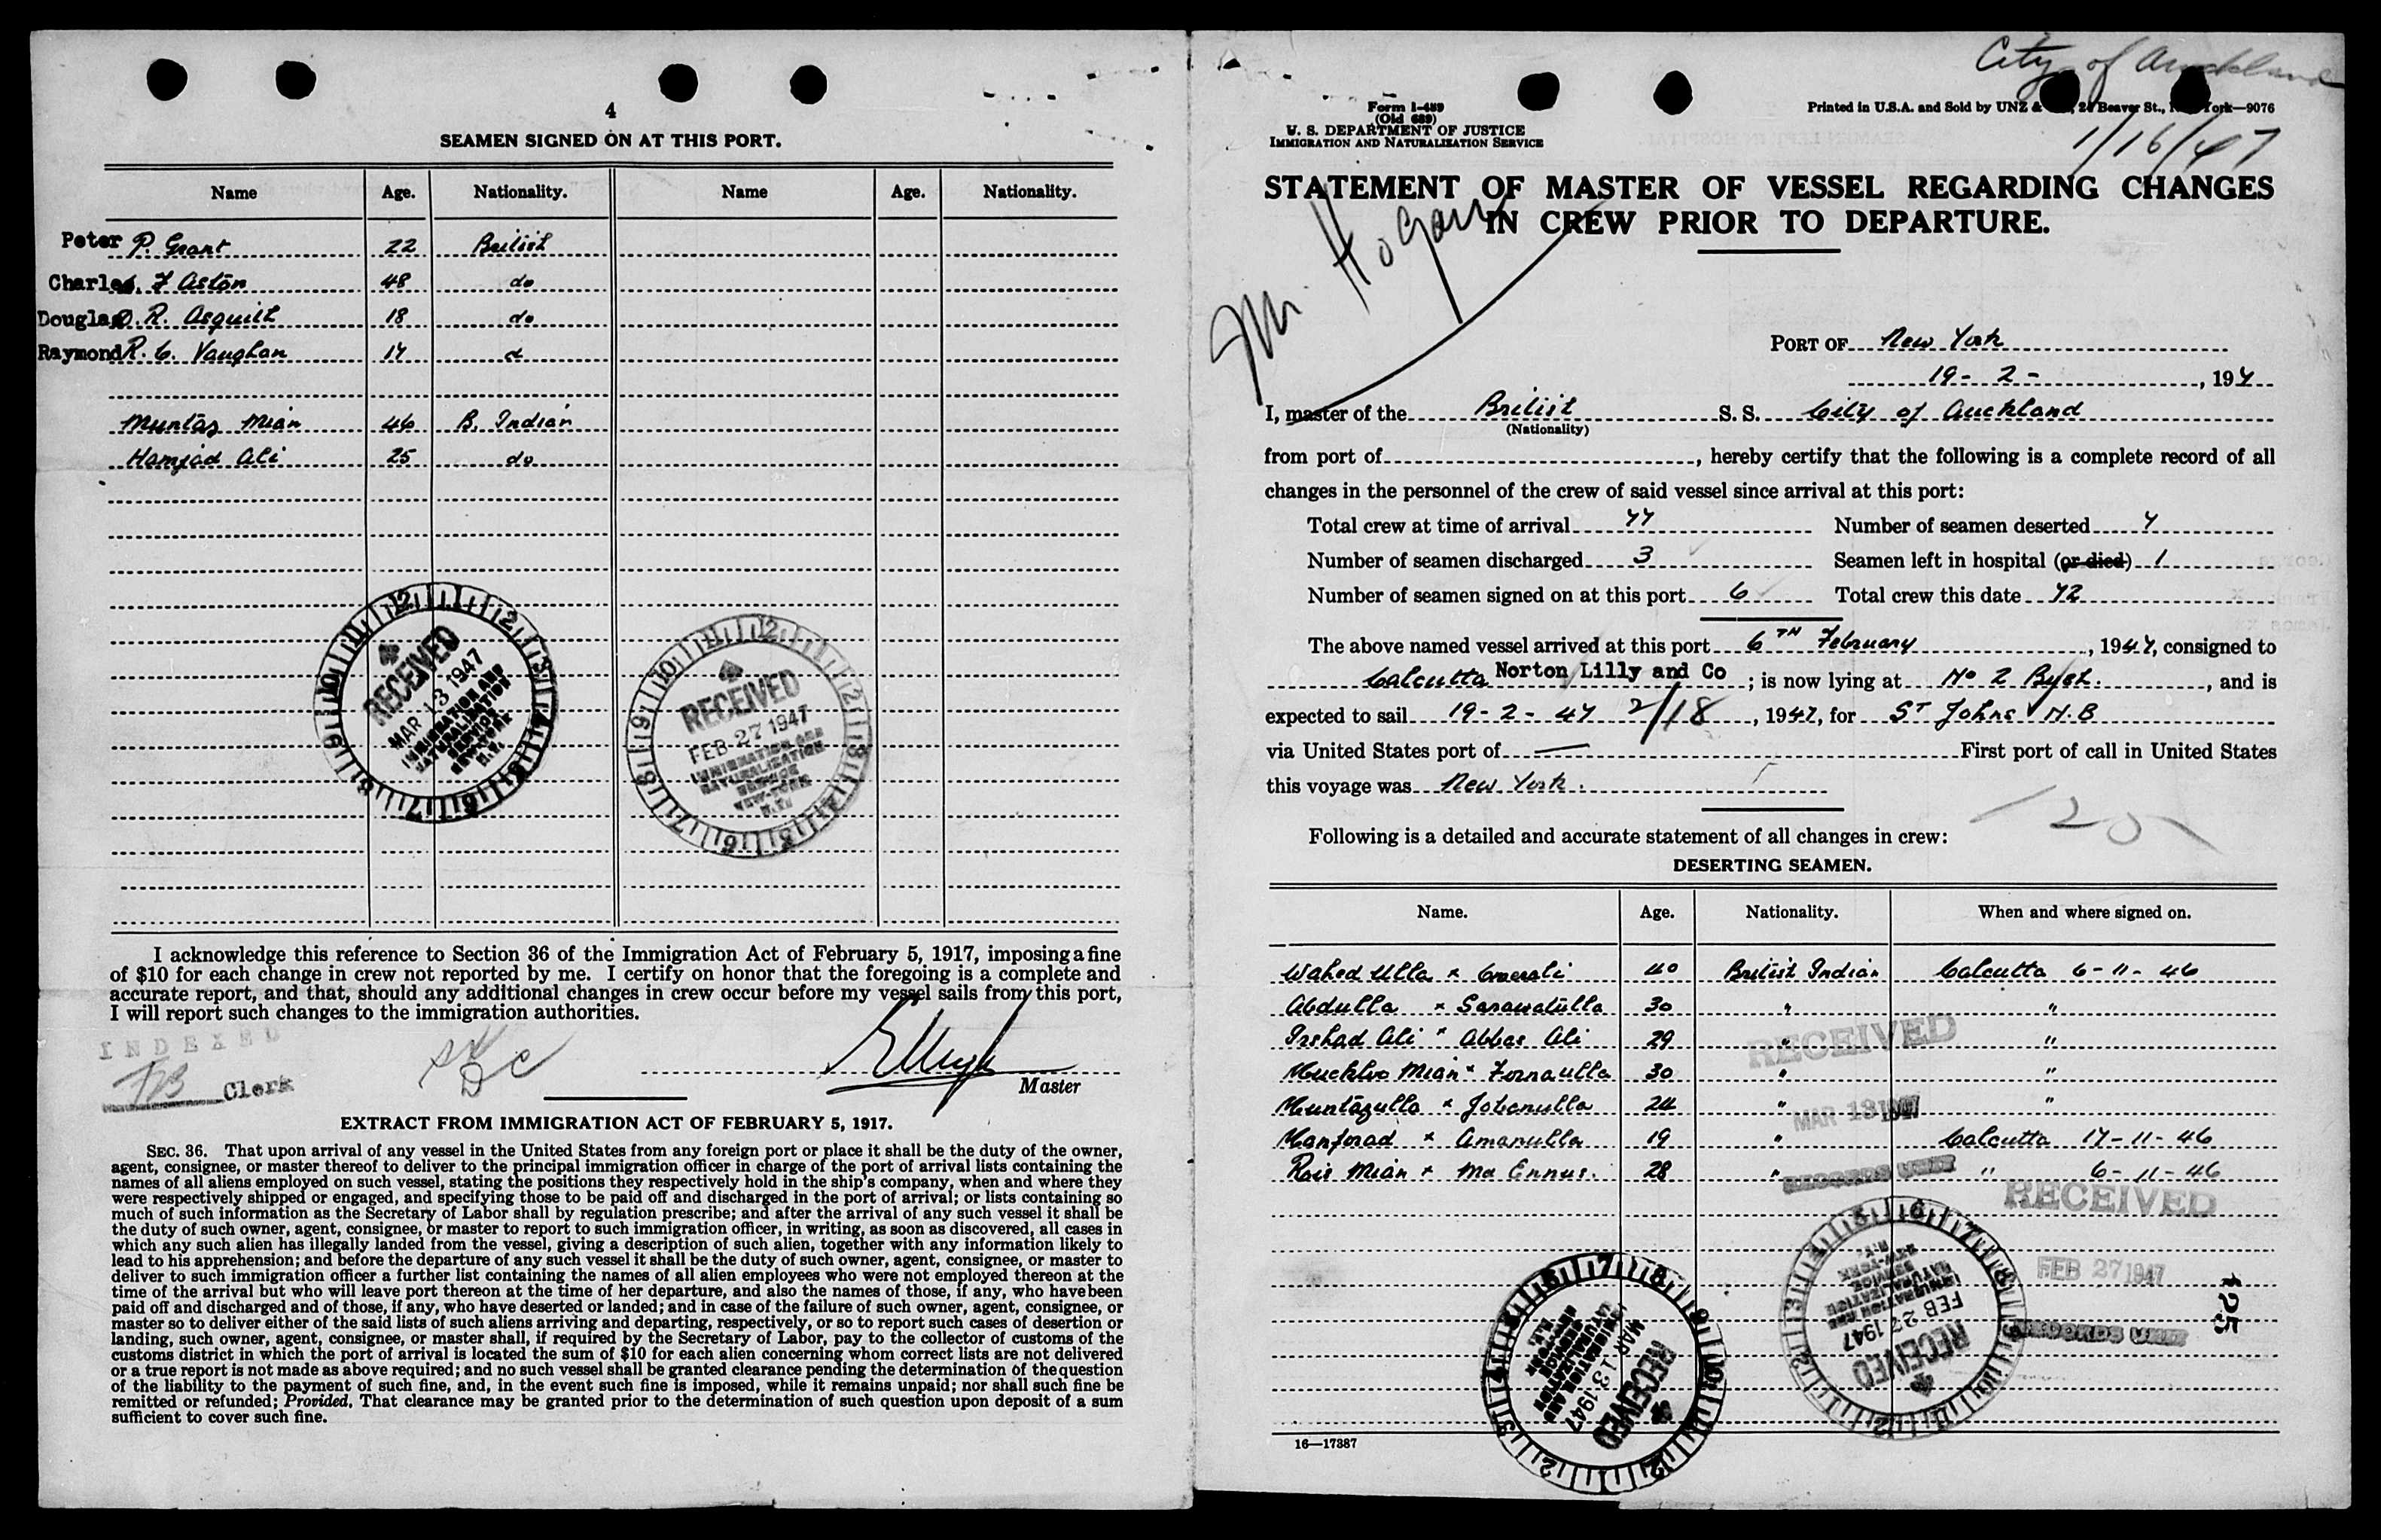 4
SEAMEN SIGNED ON AT THIS PORT.
Name Age. Nationality. Name Age. Nationality.
Peter P. Grant 22 British
Charles. F Aston 48 do
Douglas D. R. Asquith 18 do
Raymond R. C. Vaughan 17 d
Muntaz Mian 46 B. Indian
Hamjad Ali 25 do
RECEIVED
MAR 13 1947
IMMIGRATION AND
NATURALIZATION
SERVICE
NEW-YORK
N.Y.
RECEIVED
FEB 27 1947
IMMIGRATION AND
NATURALIZATION
SERVICE
NEW-YORK
N.Y.
I acknowledge this reference to Section 36 of the Immigration Act of February 5, 1917, imposing a fine
of $10 for each change in crew not reported by me. I certify on honor that the foregoing is a complete and
accurate report, and that, should any additional changes in crew occur before my vessel sails from this port,
I will report such changes to the immigration authorities.
INDEXED
Clerk
Master
EXTRACT FROM IMMIGRATION ACT OF FEBRUARY 5, 1917.
SEC. 36. That upon arrival of any vessel in the United States from any foreign port or place it shall be the duty of the owner,
agent, consignee, or master thereof to deliver to the principal immigration officer in charge of the port of arrival lists containing the
names of all aliens employed on such vessel, stating the positions they respectively hold in the ship's company, when and where they
were respectively shipped or engaged, and specifying those to be paid off and discharged in the port of arrival; or lists containing so
much of such information as the Secretary of Labor shall by regulation prescribe; and after the arrival of any such vessel it shall be
the duty of such owner, agent, consignee, or master to report to such immigration officer, in writing, as soon as discovered, all cases in
which any such alien has illegally landed from the vessel, giving a description of such alien, together with any information likely to
lead to his apprehension; and before the departure of any such vessel it shall be the duty of such owner, agent, consignee, or master to
deliver to such immigration officer a further list containing the names of all alien employees who were not employed thereon at the
time of the arrival but who will leave port thereon at the time of her departure, and also the names of those, if any, who have been
paid off and discharged and of those, if any, who have deserted or landed; and in case of the failure of such owner, agent, consignee, or
master so to deliver either of the said lists of such aliens arriving and departing, respectively, or so to report such cases of desertion or
landing, such owner, agent, consignee, or master shall, if required by the Secretary of Labor, pay to the collector of customs of the
customs district in which the port of arrival is located the sum of $10 for each alien concerning whom correct lists are not delivered
or a true report is not made as above required; and no such vessel shall be granted clearance pending the determination of the question
of the liability to the payment of such fine, and, in the event such fine is imposed, while it remains unpaid; nor shall such fine be
remitted or refunded; Provided, That clearance may be granted prior to the determination of such question upon deposit of a sum
sufficient to cover such fine.
City of Auckland
Form I-489
(Old 689)
U. S. DEPARTMENT OF JUSTICE
IMMIGRATION AND NATURALIZATION SERVICE
Printed in U.S.A. and Sold by UNZ & 24 Beaver St., York—9076
1/16/47
STATEMENT OF MASTER OF VESSEL REGARDING CHANGES
IN CREW PRIOR TO DEPARTURE.
Mr. Hogan
PORT OF New York
19 - 2 - , 1947
I, master of the British S. S. City of Auckland
(Nationality)
from port of , hereby certify that the following is a complete record of all
changes in the personnel of the crew of said vessel since arrival at this port:
Total crew at time of arrival 77 Number of seamen deserted 7
Number of seamen discharged 3 Seamen left in hospital (or died) 1
Number of seamen signed on at this port 6 Total crew this date 72
The above named vessel arrived at this port 6TH February , 1947, consigned to
Calcutta Norton Lilly and Co ; is now lying at No 2 , and is
expected to sail 19-2-47 2/18 , 1947, for ST Johns N.B
via United States port of — First port of call in United States
this voyage was New York.
Following is a detailed and accurate statement of all changes in crew:
DESERTING SEAMEN.
Name. Age. Nationality. When and where signed on.
Wahed Ulla x 40 British Indian Calcutta 6-11-46
Abdulla x 30 " "
Irshad Ali x Abbas Ali 29 " "
Mian x 30 " "
Muntazulla x 24 " "
x Amanulla 19 " Calcutta 17-11-46
Rois Mian x Md Ennus. 28 " " 6-11-46
RECEIVED
MAR 13 1947
RECORDS UNIT
RECEIVED
FEB 27 1947
RECORDS UNIT
125
RECEIVED
MAR 13 1947
IMMIGRATION AND
NATURALIZATION
SERVICE
NEW-YORK
N.Y.
RECEIVED
FEB 27 1947
IMMIGRATION AND
NATURALIZATION
SERVICE
NEW-YORK
N.Y.
16—17387